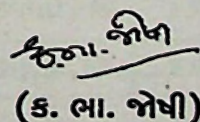 ક. ભા. જોષી
(ક. ભા. જોષી)